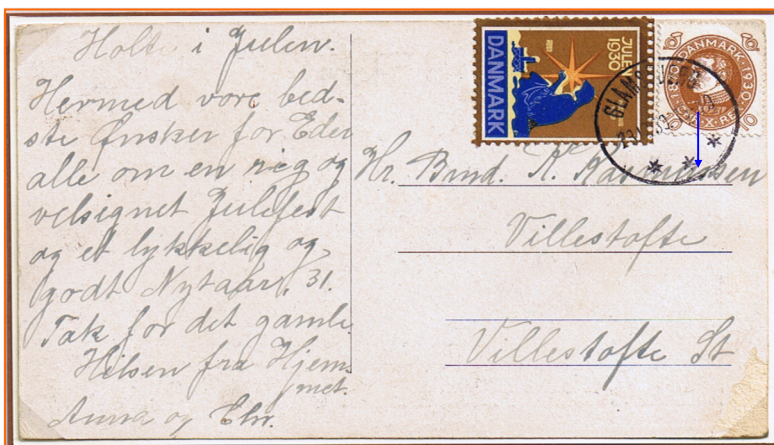 Holte i Julen.
Hermed vore bed-
ste Ønsker for Eder
alle om en rig og
velsignet Julefest
og et lykkelig og
godt Nytaar. 31.
Tak for det gamle.
Hilsen fra Hjem-
met.
Anna og
JULEN
1930
DANMARK
DANMARK
1930
10
10
10
10
Hr. K. Rasmussen
Villestofte
Villestofte St